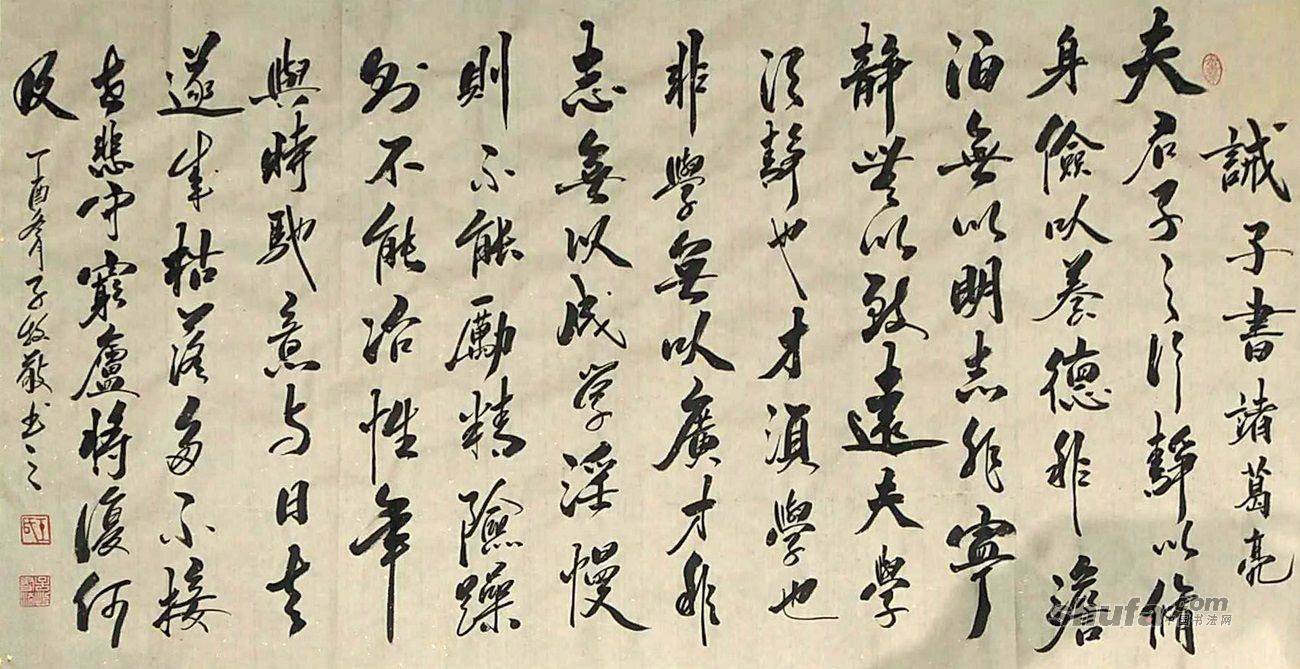 誡子書 諸葛亮
夫君子之行靜以脩
身儉以養德非澹
泊無以明志非寧
靜無以致遠夫學
須靜也才須學也
非學無以廣才非
志無以成學淫慢
則不能勵精險躁
則不能冶性年
與時馳意与日去
遂成枯落多不接
世悲守窮廬將復何
及
丁酉 子牧敬书之
shufa.com
中国书法网